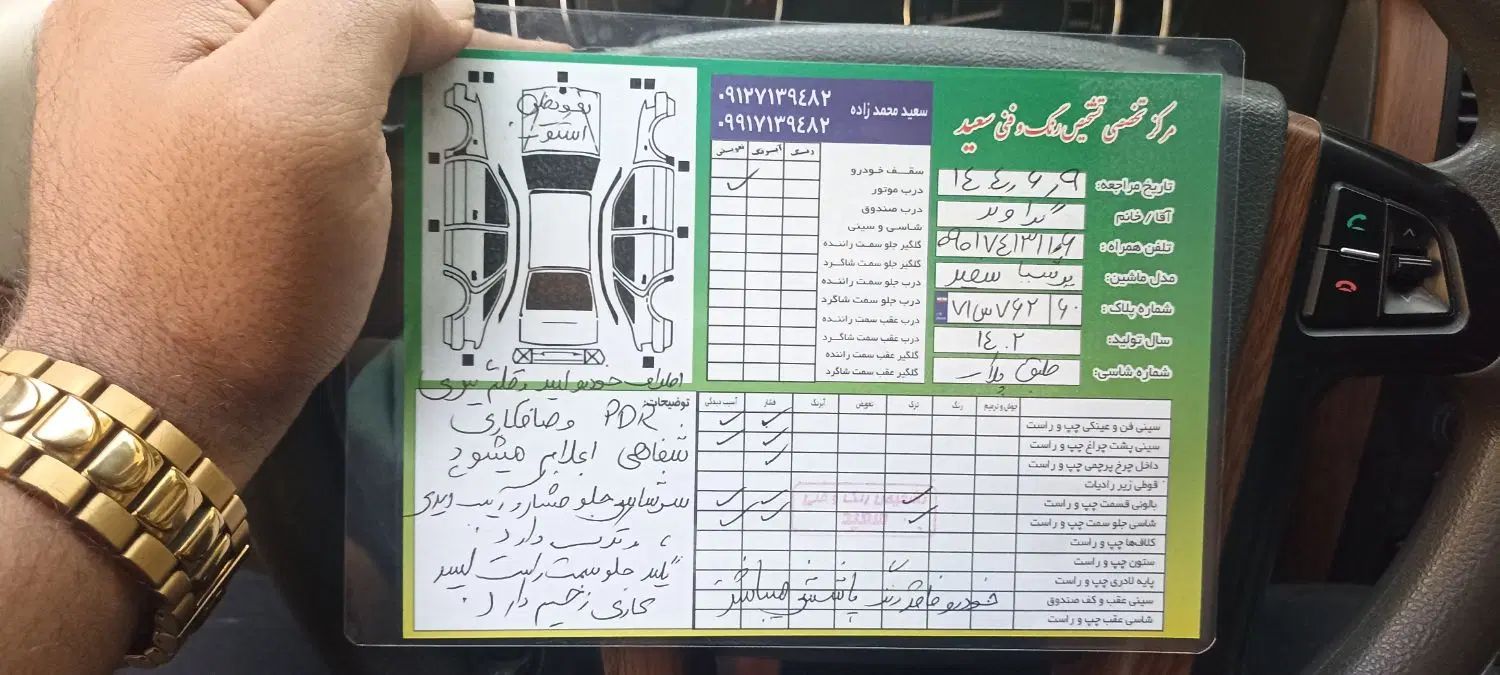 مرکز تخصصی تشخیص رنگ و فنی سعید
سعید محمد زاده
۰۹۱۲۷۱۳۹٤۸۲
۰۹۹۱۷۱۳۹٤۸۲
تاریخ مراجعه: ۱٤۰٤٫۶٫۹
آقا / خانم
تلفن همراه:
مدل ماشین: سفید
شماره پلاک: ۷۱س۷۶۲ ۶۰
سال تولید: ۱٤۰۲
شماره شاسی: طبق پلاک
رنگ آبرنگ تعویض
سقف خودرو
درب موتور ✓
درب صندوق
شاسی و سینی
گلگیر جلو سمت راننده
گلگیر جلو سمت شاگرد
درب جلو سمت راننده
درب جلو سمت شاگرد
درب عقب سمت راننده
درب عقب سمت شاگرد
گلگیر عقب سمت راننده
گلگیر عقب سمت شاگرد
تعویض
استوک
جوش و ترمیم رنگ ترک تعویض آبرنگ فشار آسیب دیدگی
سینی فن و عینکی چپ و راست ✓ ✓
سینی پشت چراغ چپ و راست ✓ ✓
داخل چرخ پرچمی چپ و راست ✓
قوطی زیر رادیات
بالونی قسمت چپ و راست ✓ ✓ ✓
شاسی جلو سمت چپ و راست ✓ ✓ ✓
کلاف‌ها چپ و راست
ستون چپ و راست
پایه لادری چپ و راست
سینی عقب و کف صندوق
شاسی عقب چپ و راست
خودرو فاقد رنگ پاششی میباشد
توضیحات:
اطراف خودرو لیسه و قلم
PDR و صافکاری
شفاهی اعلام میشود
سرشاسی جلو فشار و آسیب دیدگی
و ترک دارد.
گلگیر جلو سمت راست لیسه
کاری زخیم دارد.